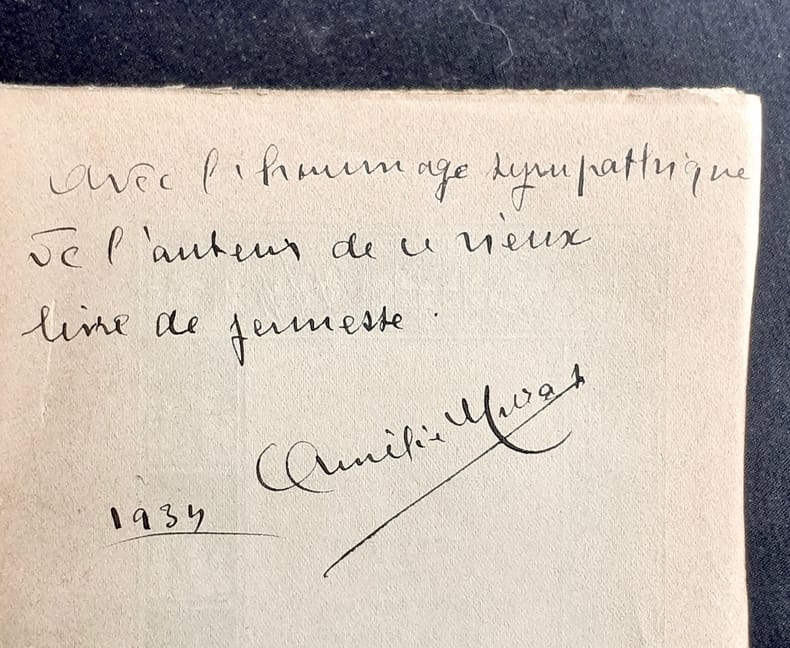 avec l'hommage sympathique
de l'auteur de ce vieux
livre de jeunesse.
Amélie Murat
1934